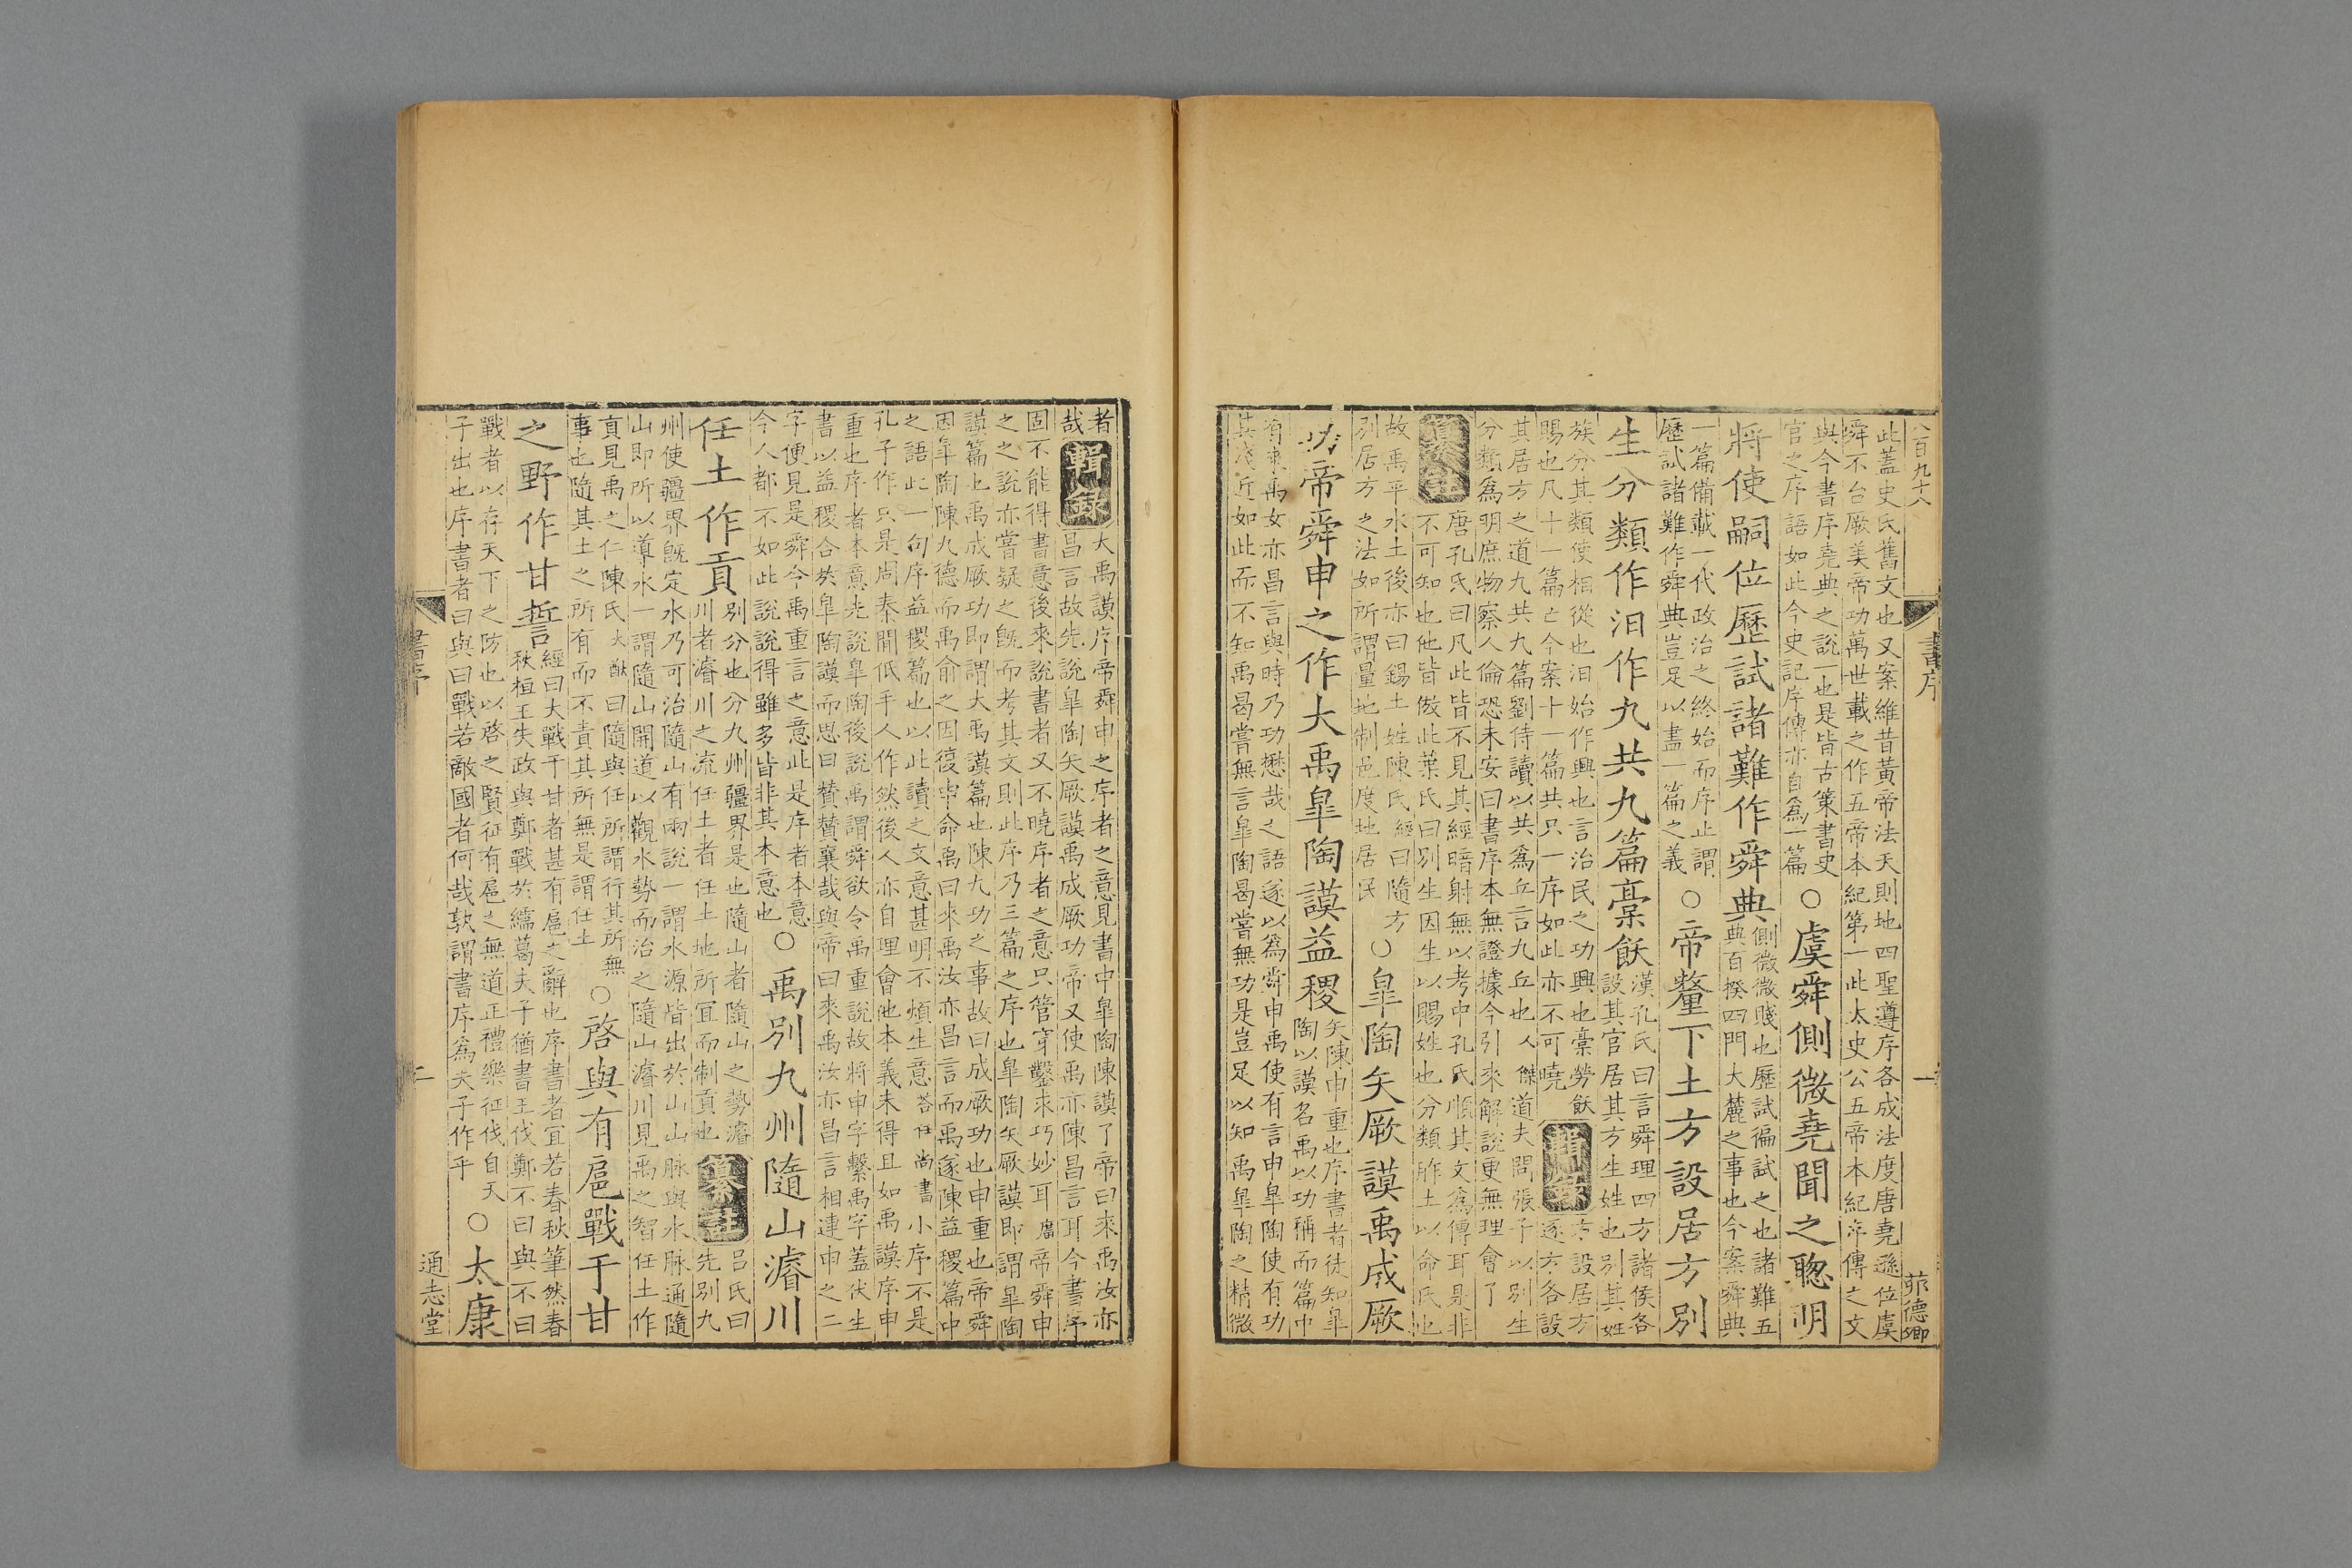 八百九十八
書序
一
德卿
此蓋史氏舊文也又案維昔黃帝法天則地四聖遵序各成法度唐堯遜位虞
舜不台厥美帝功萬世載之作五帝本紀第一此太史公五帝本紀序傳之文
與今書序堯典之說一也是皆古策書史
官之序語如此今史記序傳亦自爲一篇
○虞舜側微堯聞之聦明
將使嗣位歷試諸難作舜典
側微微賤也歷試徧試之也諸難五
典百揆四門大麓之事也今案舜典
一篇備載一代政治之終始而序止謂
歷試諸難作舜典豈足以盡一篇之義
○帝釐下土方設居方別
生分類作汩作九共九篇槀飫
漢孔氏曰言舜理四方諸侯各
設其官居其方生姓也別其姓
族分其類使相從也汩始作興也言治民之功興也槀勞飫
賜也凡十一篇亡今案十一篇共只一序如此亦不可曉
輯錄
方設居方
逐方各設
其居方之道九共九篇劉侍讀以共爲丘言九丘也人傑道夫問張子以別生
分類爲明庶物察人倫恐未安曰書序本無證據今引來解說更無理會了
纂註
唐孔氏曰凡此皆不見其經暗射無以考中孔氏順其文爲傳耳是非
不可知也他皆倣此葉氏曰別生因生以賜姓也分類胙土以命氏也
故禹平水土後亦曰錫土姓陳氏經曰隨方
別居方之法如所謂量地制邑度地居民
○皐陶矢厥謨禹成厥
功帝舜申之作大禹皐陶謨益稷
矢陳申重也序書者徒知皐
陶以謨名禹以功稱而篇中
有來禹女亦昌言與時乃功懋哉之語遂以爲舜申禹使有言申皐陶使有功
其淺近如此而不知禹曷嘗無言皐陶曷嘗無功是豈足以知禹皐陶之精微
者
哉
輯錄
大禹謨序帝舜申之序者之意見書中皐陶陳謨了帝曰來禹汝亦
昌言故先說皐陶矢厥謨禹成厥功帝又使禹亦陳昌言耳今書序
固不能得書意後來說書者又不曉序者之意只管穿鑿求巧妙耳廣帝舜申
之之說亦嘗疑之旣而考其文則此序乃三篇之序也皐陶矢厥謨即謂皐陶
謨篇也禹成厥功即謂大禹謨篇也陳九功之事故曰成厥功也申重也帝舜
因皐陶陳九德而禹俞之因復申命禹曰來禹汝亦昌言而禹遂陳益稷篇中
之語此一句序益稷篇也以此讀之文意甚明不煩生意答任尚書小序不是
孔子作只是周秦閒低手人作然後人亦自理會他本義未得且如禹謨序申
重也序者本意先說皐陶後說禹謂舜欲令禹重說故將申字繫禹字蓋伏生
書以益稷合於皐陶謨而思曰贊贊襄哉與帝曰來禹汝亦昌言相連申之二
字便見是舜令禹重言之意此是序者本意
今人都不如此說說得雖多皆非其本意也
○禹別九州隨山濬川
任土作貢
別分也分九州疆界是也隨山者隨山之勢濬
川者濬川之流任土者任土地所宜而制貢也
纂註
呂氏曰
先別九
州使疆界旣定水乃可治隨山有兩說一謂水源皆出於山山脉與水脉通隨
山即所以導水一謂隨山開道以觀水勢而治之隨山濬川見禹之智任土作
貢見禹之仁陳氏大猷曰隨與任所謂行其所無
事也隨其土之所有而不責其所無是謂任土
○啓與有扈戰于甘
之野作甘誓
經曰大戰于甘者甚有扈之辭也序書者宜若春秋筆然春
秋桓王失政與鄭戰於繻葛夫子猶書王伐鄭不曰與不曰
戰者以存天下之防也以啓之賢征有扈之無道正禮樂征伐自天
子出也序書者曰與曰戰若敵國者何哉孰謂書序爲夫子作乎
○太康
書序
二
通志堂